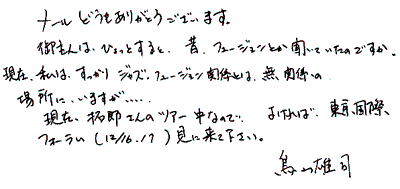 メールどうもありがとうございます。
御主人は、ひょっとすると、昔、フュージョンとか聞いていたのですか。
現在、私は、すっかりジャズ、フュージョン関係とは、無関係の
場所に、いますが.....
現在、拓郎さんのツアー中なので、よければ、東京国際
フォーラム(12/16.17)見に来て下さい。
鳥山雄司